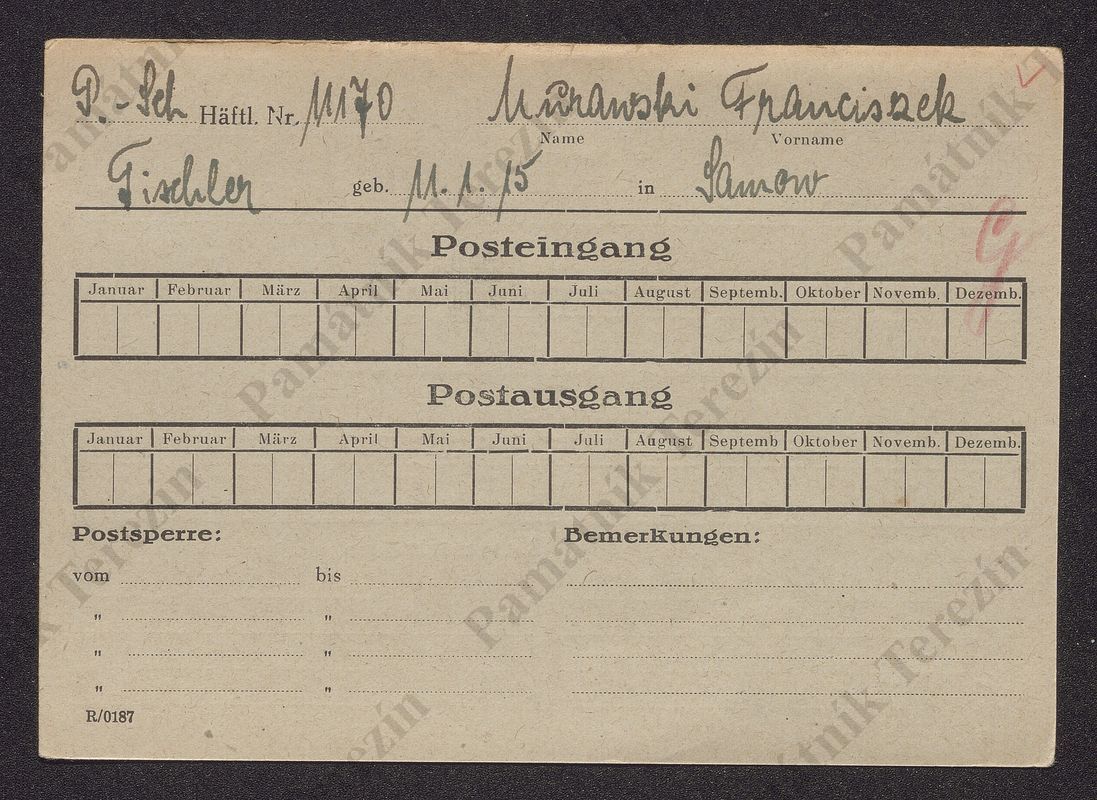 P.-Sch Häftl. Nr. 11170 Murawski Franciszek
Name Vorname
Tischler geb. 11. 1. 15 in Sanow
Posteingang
Januar Februar März April Mai Juni Juli August Septemb. Oktober Novemb. Dezemb.
Postausgang
Januar Februar März April Mai Juni Juli August Septemb Oktober Novemb. Dezemb.
Postsperre: Bemerkungen:
vom bis
" "
" "
" "
R/0187
Památník Terezín